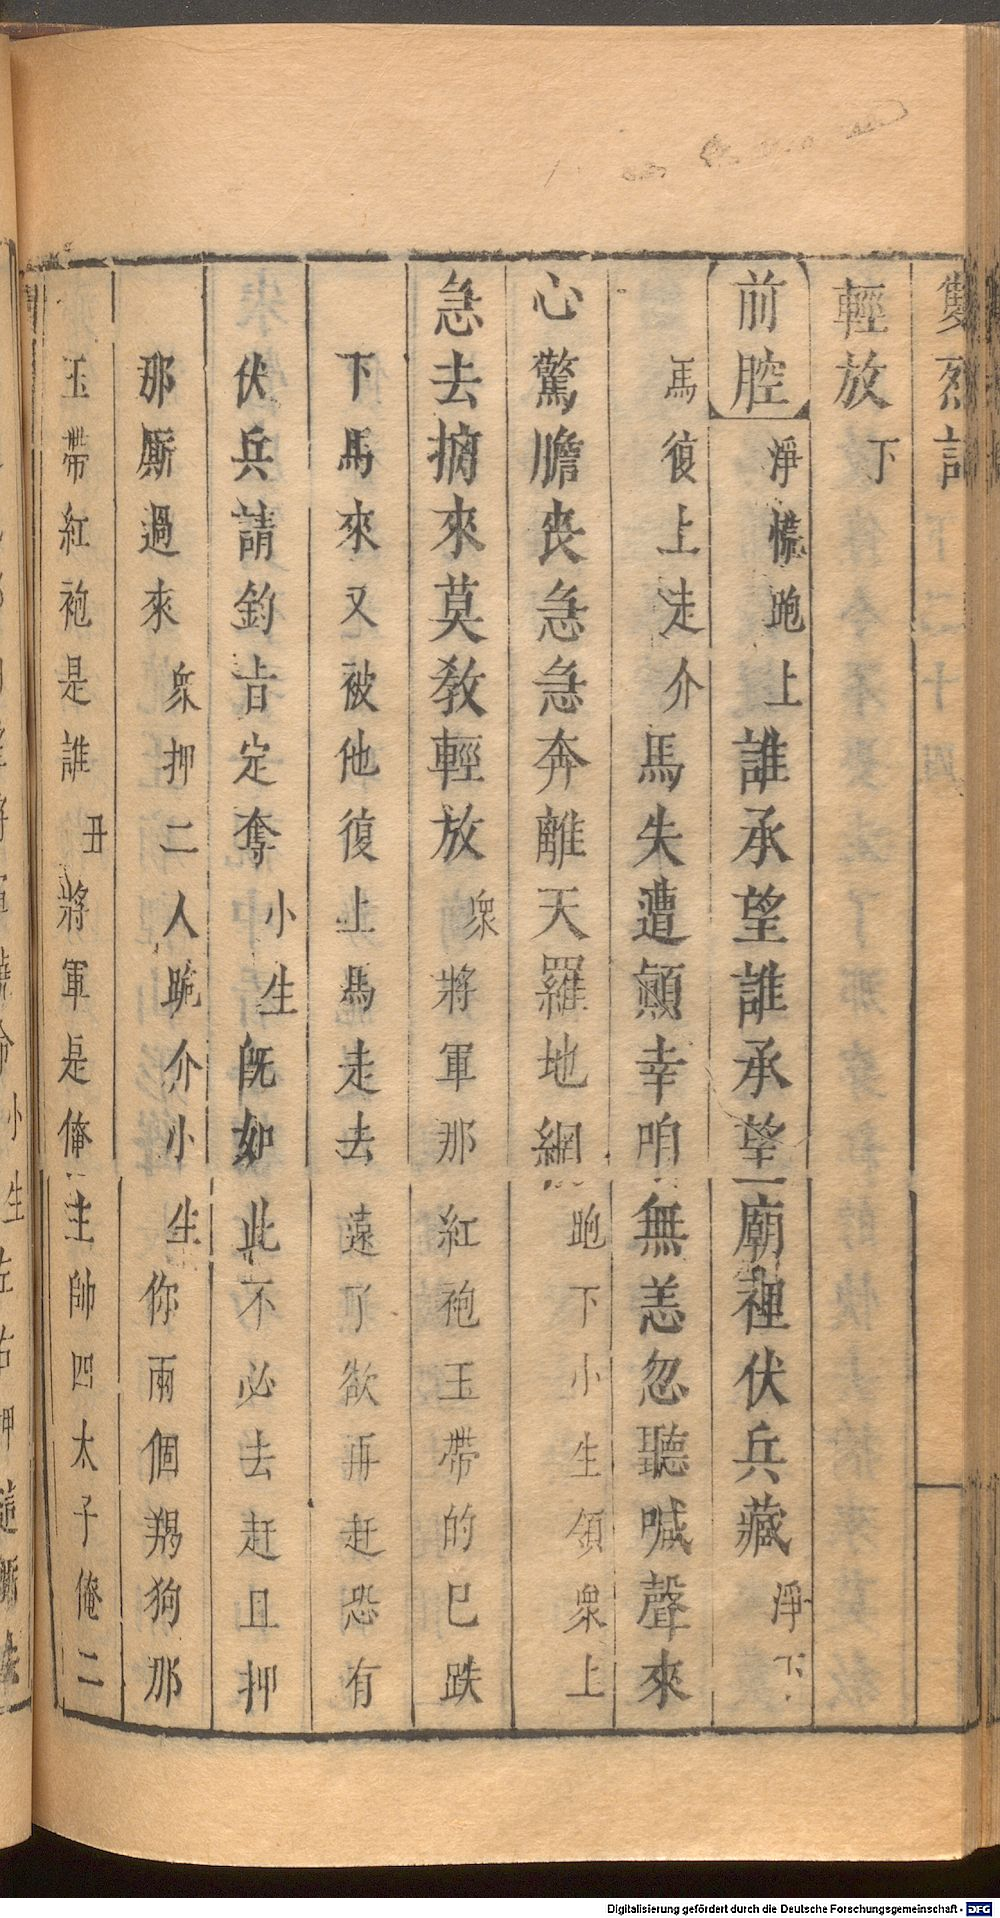 雙烈記
輕放下
前腔淨慌跑上誰承望誰承望廟裡伏兵藏淨下
馬復上走介馬失遭顛幸咱無恙忽聽喊聲來
心驚膽丧急急奔離天羅地網跑下小生領衆上
急去擒來莫教輕放衆將軍那紅袍玉帶的已跌
下馬來又被他復上馬走去遠了欲再赶恐有
伏兵請鈞旨定奪小生既如此不必去赶且押
那厮過來衆押二人跪介小生你兩個羯狗那
玉帶紅袍是誰丑將軍是俺主帥四太子俺二
Digitalisierung gefördert durch die Deutsche Forschungsgemeinschaft - DFG